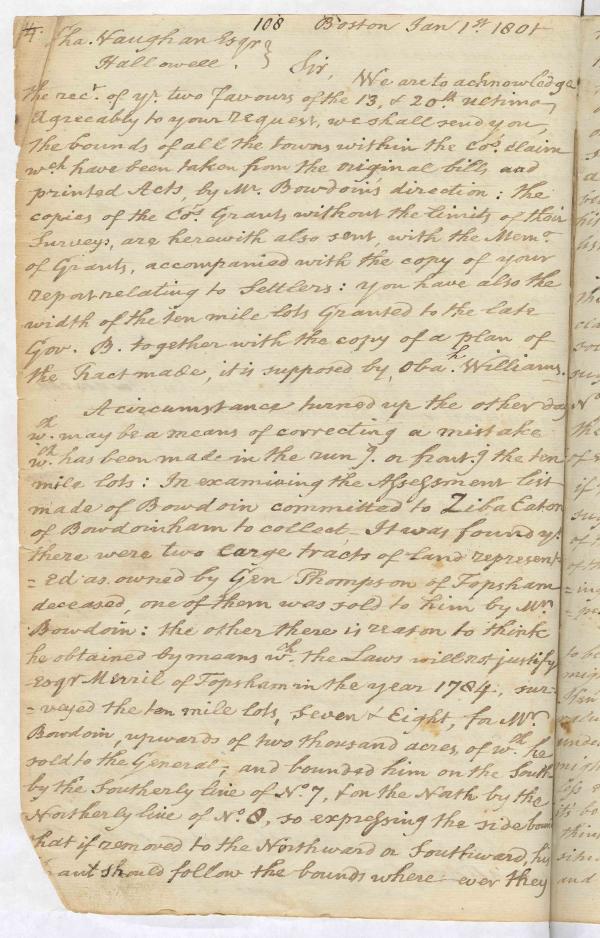 108 Boston Jan 1st 1801
Cha. Vaughan Esqr }
Hallowell. } Sir,
We are to acknowledge
the recr. of yr. two favours of the 13, & 20th ultimo
Agreeably to your request, we shall send you,
the bounds of all the towns within the Cos. claim
wch have been taken from the original bills and
printed Acts, by Mr. Bowdoin's direction: the
copies of the Cos. Grants without the limits of their
Surveys, are herewith also sent, with the Memo.
of Grants, accompanied with the copy of your
report relating to Settlers: you have also the
width of the ten mile lots Granted to the late
Gov. B. together with the copy of a plan of
the Tract made, it is supposed by, Obah. Williams.
A circumstance turned up the other day
wch. may be a means of correcting a mistake
wch. has been made in the rung. or frontg. the ten
mile lots: In examining the Assessment list
made of Bowdoin committed to Ziba Eaton
of Bowdoinham to collect – It was found yt.
there were two large tracts of land represent-
=ed as owned by Gen Thompson of Topsham
deceased, one of them was sold to him by Mr.
Bowdoin: the other there is reason to think
he obtained by means wch. the Laws will not justify
Esqr Merril of Topsham in the year 1784, sur-
=veyed the ten mile lots, Seven & Eight, for Mr.
Bowdoin, upwards of two thousand acres, of wch. he
sold to the General; and bounded him on the South
by the Southerly line of No. 7, & on the North by the
Northerly line of No. 8, so expressing the side bounds
that if removed to the Northward or Southward, his
should follow the bounds where-ever they